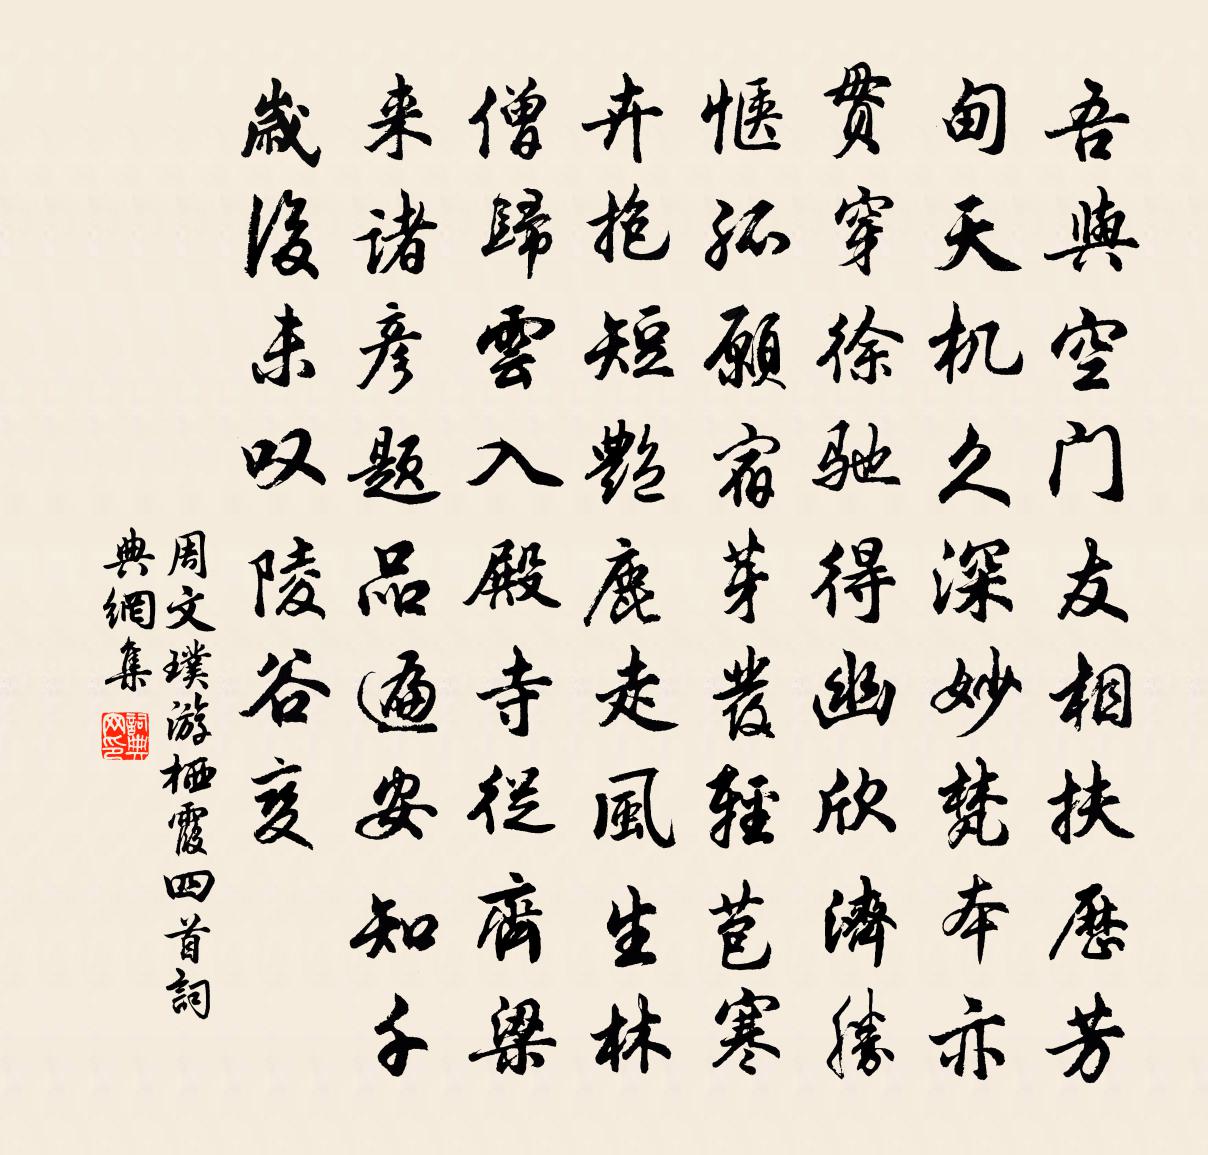 吾與空门友相扶歷芳
甸天机久深妙梵本亦
贯穿徐驰得幽欣濟勝
愜孤願宿芽發輕苞寒
卉抱短艷鹿走風生林
僧歸雲入殿寺從齊梁
来诸彦题品遍安知千
歲後未叹陵谷变
周文璞游栖霞四首詞
典網集
詞典
网印